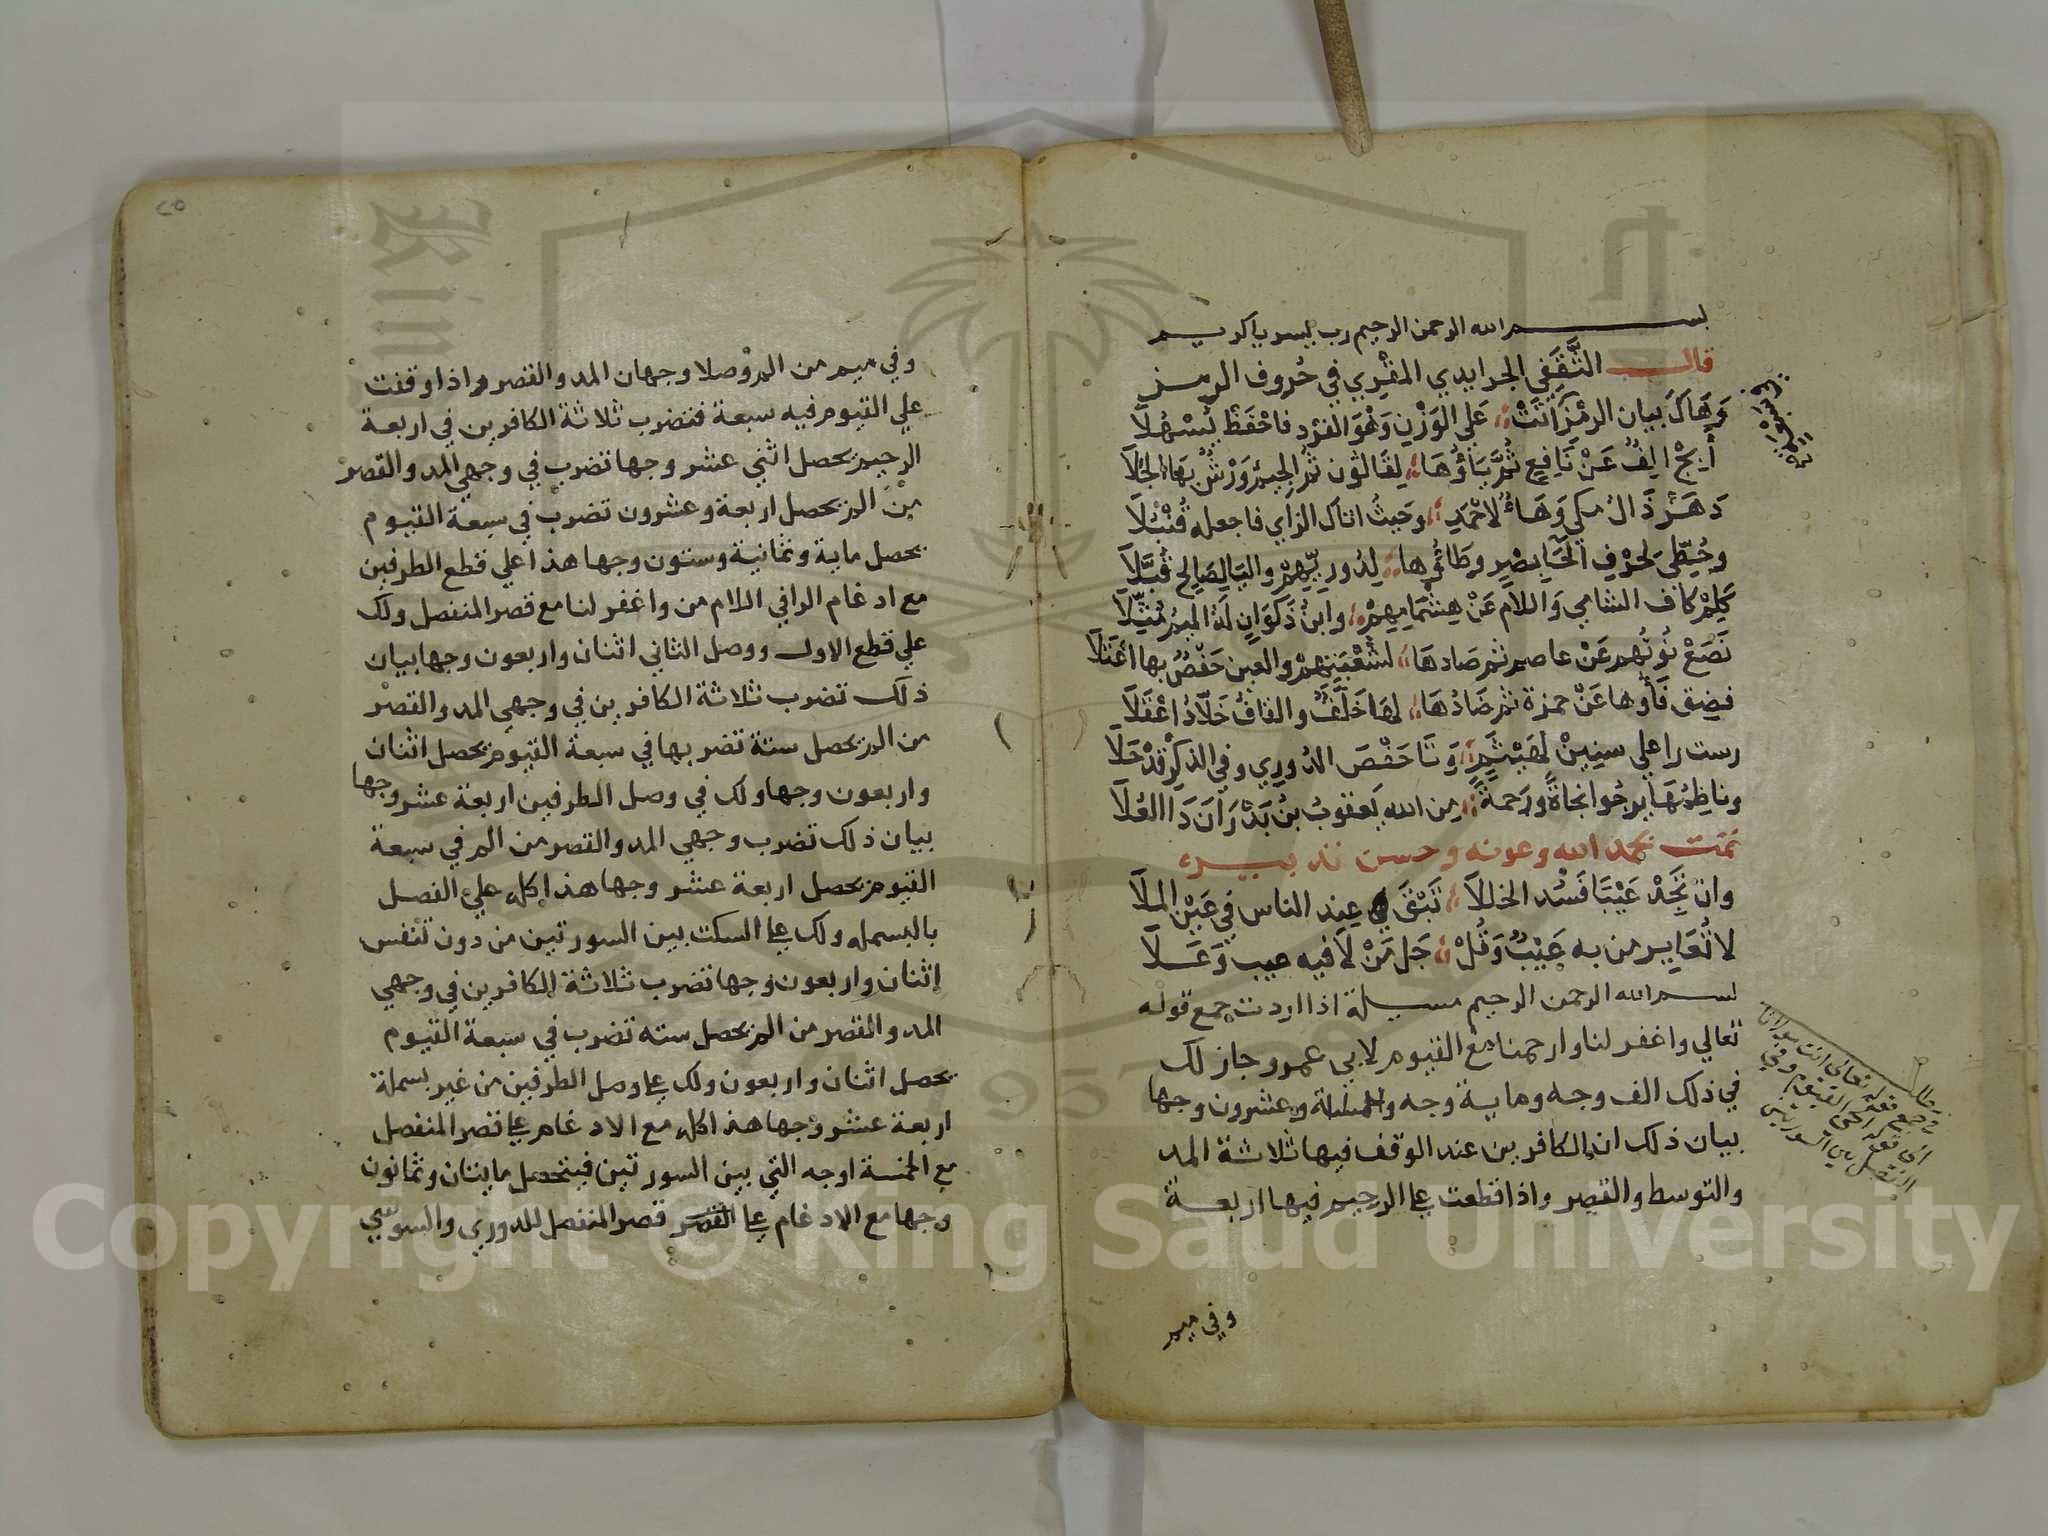 بسم الله الرحمن الرحيم رب يسر يا كريم
قال الثَّقَفي الجرايدي المقري في حُروف الرمز
وَهَاكَ بيان الرمْز أتَتْ عَلي الوَزْنِ وَهْوَ الفرْد فاحْفَظْ لِتُسْهُلاَ
أَبِجْ الِفُ عَنْ نَافِعٍ ثُمَّ بَاؤُهَا لِقَالُون ثم الجيمُ وَرْشٌ بهَا
دَهَزْ ذَالُ مكي وَهَاءٌ لاحْمَدٍ وحَيثُ اتاك الزاي فاجعله قُنْبُلاَ
وحُطِّي لحَرْفِ الحَا بصْرٍ وطَاؤُها لِدُورِيِّهِمْ واليَا لِصَالح
كَلِمْ كاف الشامي وَاللام عَنْ هِشَامِهِمْ وابنُ ذَكوَانٍ لَهُ الميمُ مُثِّلاَ
نَصَعْ نُونُهم عَنْ عاصم ثم صَادهَا لشُعْبَتِهِمْ والعين حَفْصٌ بها اعْتَلاَ
فضِق فَاؤُها عَنْ حمزة ثم ضَادُهَا لهَا خَلَفٌ والقافُ خَلاَّدُ
رست را علي سنِينْ وَتَا حَفْصَ الدُوري وفي الذكْرِ قدْ حَلاَ
وناظِمُهَا يرجُوا نجاةً ورَحمةً مِن الله يَعقوبُ بنُ بَدْرَانَ ذَا العُلاَ
تمت بحمد الله وعونه وحسن تدبيره
وانْ تَجِدْ عَيْبًا فَسُد الخاللاَ تَبْقَي عِند الناس في عَيْن الملاَ
لا تُعَاير من به عَيْبٌ وَقُلْ جَل مَنْ لاَ فيه عيب وَعَلاَ
بسم الله الرحمن الرحيم مسيلة اذا اردت جمع قوله
تعالي واغفر لنا وارحمنا مع القيوم لابي عمرو جاز لك
في ذلك الف وجه وماية وجه وعشرون وجها
بيان ذلك ان الكافرين عند الوقف فيها ثلاثة المد
والتوسط والقصر واذا قطعت على الرحيم فيها اربعة
وفي ميم
وفي ميم من الم وصلا وجهان المد والقصر واذا وقفت
علي القيوم فيه سبعة فتضرب ثلاثة الكافرين في اربعة
الرحيم يحصل اثني عشر وجها تضرب في وجهي المد والقصر
من الم يحصل اربعة وعشرون تضرب في سبعة القيوم
يحصل ماية وثمانية وستون وجها هذا علي قطع الطرفين
مع ادغام الرافي اللام من واغفر لنا مع قصر المنفصل ولك
علي قطع الاول ووصل الثاني اثنان واربعون وجها بيان
ذلك تضرب ثلاثة الكافرين في وجهي المد والقصر
من الم يحصل ستة تضربها في سبعة القيوم يحصل اثنان
واربعون وجها ولك في وصل الطرفين اربعة عشر وجها
بيان ذلك تضرب وجهي المد والقصر من الم في سبعة
القيوم يحصل اربعة عشر وجها هذا كله علي الفصل
بالبسمله ولك على السكت بين السورتين من دون تنفس
إثنان واربعون وجها تضرب ثلاثة الكافرين في وجهي
المد والقصر من الم يحصل سته تضرب في سبعة القيوم
يحصل اثنان واربعون ولك على وصل الطرفين من غير بسملة
اربعة عشر وجها هذا كله مع الادغام على قصر المنفصل
مع الخمسة اوجه التي بين السورتين فيتحصل مايتان وثمانون
وجها مع الادغام على القصر قصر المنفصل للدوري والسوسي